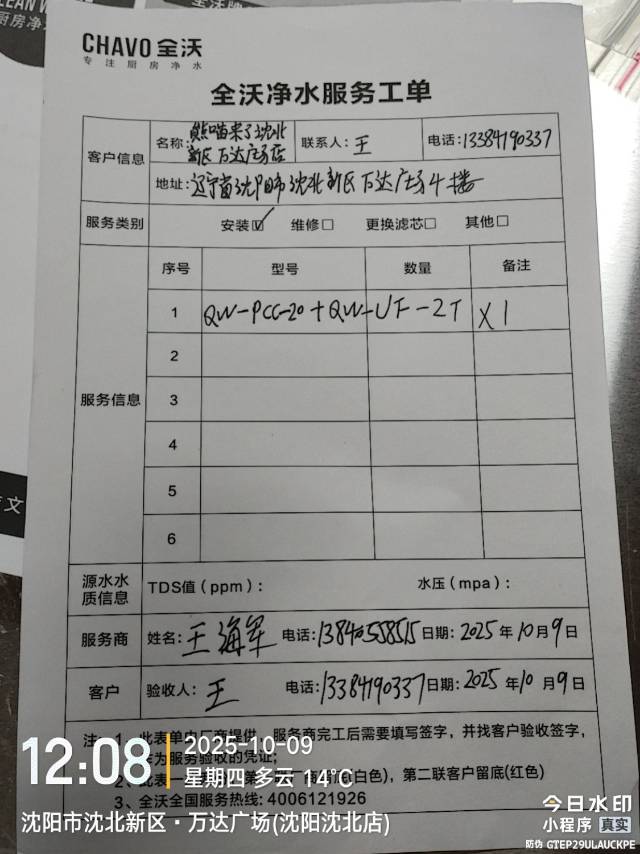 CHAVO 全沃
专注厨房净水
全沃净水服务工单
客户信息
名称: 熊喵来了沈北新区万达广场店 联系人: 王 电话: 13384190337
地址: 辽宁省沈阳市沈北新区万达广场4楼
服务类别 安装☑ 维修□ 更换滤芯□ 其他□
服务信息
序号 型号 数量 备注
1 QW-PCC-20+QW-UF-2T X1
2
3
4
5
6
源水水质信息 TDS值（ppm）: 水压（mpa）:
服务商 姓名: 王海军 电话: 13840558515 日期: 2025年10月9日
客户 验收人: 王 电话: 13384190337 日期: 2025年10月9日
注: 1、此表单由厂商提供，服务商完工后需要填写签字，并找客户验收签字，
作为服务验收的凭证;
2、此表 (白色)，第二联客户留底(红色)
3、全沃全国服务热线: 4006121926
12:08
2025-10-09
星期四 多云 14℃
沈阳市沈北新区·万达广场(沈阳沈北店)
今日水印
小程序 真实
防伪 GTEP29ULAUCKPE